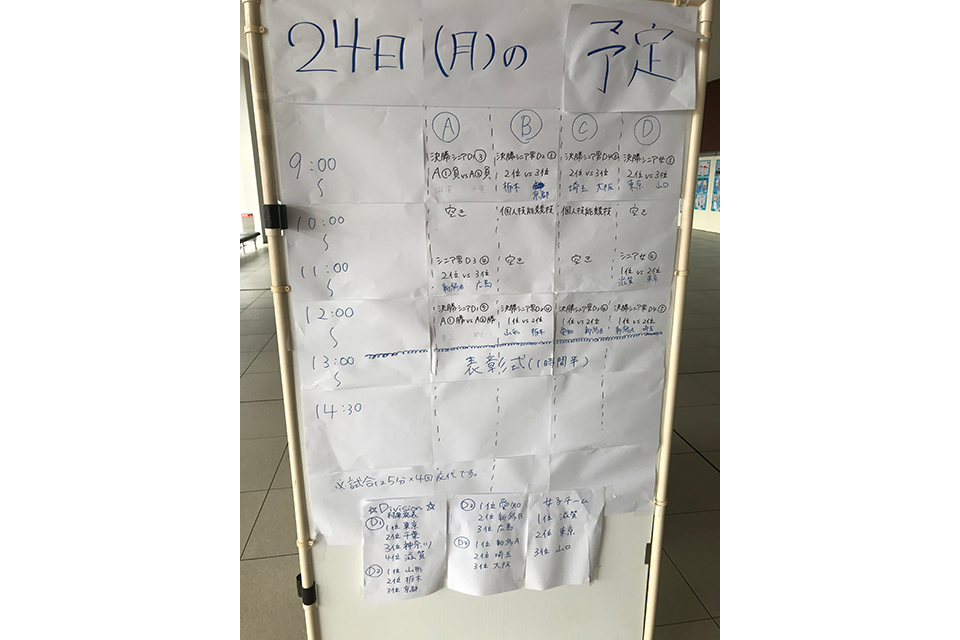 24日(月)の 予定
Ⓐ Ⓑ Ⓒ Ⓓ
9:00
決勝シニアD1③ 決勝シニア男D2 決勝シニア男D4 決勝シニア女③
A①負vsA②負 2位 vs 3位 2位 vs 3位 2位 vs 3位
栃木 京都 埼玉 大阪 東京 山口
10:00
空き 個人技能競技 個人技能競技 空き
11:00
シニア男D3④ 空き 空き シニア女④
2位 vs 3位 1位 vs 2位
新潟B 広島 滋賀 東京
12:00
決勝シニアD1 決勝シニア男D2 決勝シニア男D3 決勝シニア男D4
A①勝vsA②勝 1位 vs 2位 1位 vs 2位 1位 vs 2位
山形 栃木 愛知 新潟B 新潟A 埼玉
13:00
表彰式(1時間半)
14:30
※試合は5分×4回交代です。
☆Division☆
結果発表
D1 1位 東京
2位 千葉
3位 神奈川
4位 滋賀
D2 1位 山形
2位 栃木
3位 京都
D3 1位 愛知
2位 新潟B
3位 広島
D4 1位 新潟A
2位 埼玉
3位 大阪
女子チーム
1位 滋賀
2位 東京
3位 山口